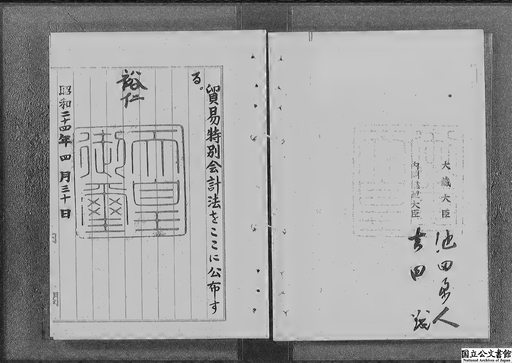 貿易特別会計法をここに公布す
る。
裕仁
昭和二十四年四月三十日
天皇
御璽
大蔵大臣 池田勇人
内閣総理大臣 吉田茂
国立公文書館
National Archives of Japan